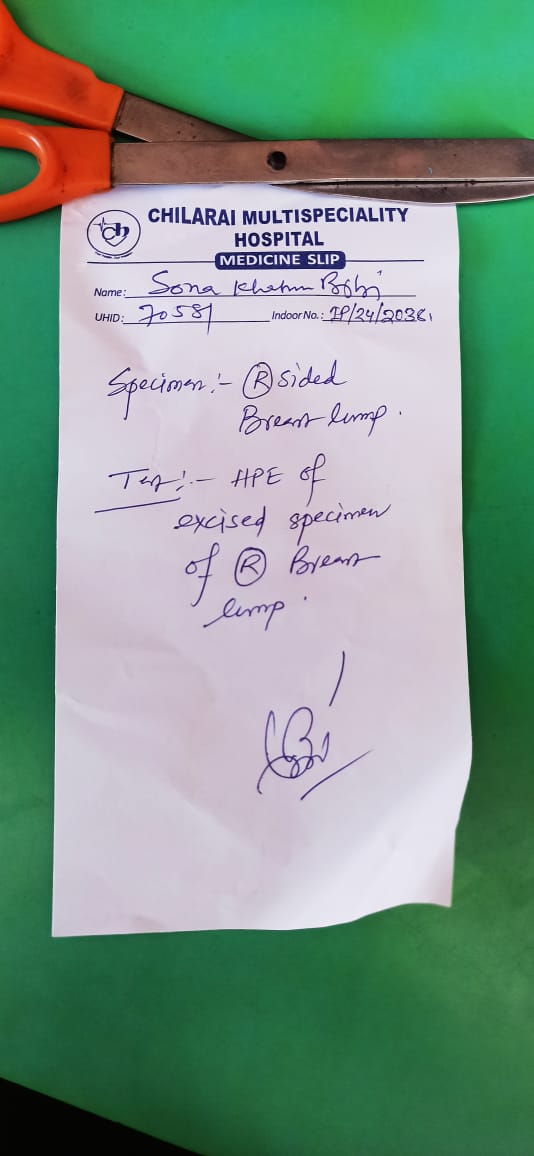 ch
CHILARAI MULTISPECIALITY
HOSPITAL
MEDICINE SLIP
Name: Sona Khatun Bibi
UHID: 70581 Indoor No.: IP/24/2038
Specimen:- (R) sided
Breast lump.
Test:- HPE of
excised specimen
of (R) Breast
lump.